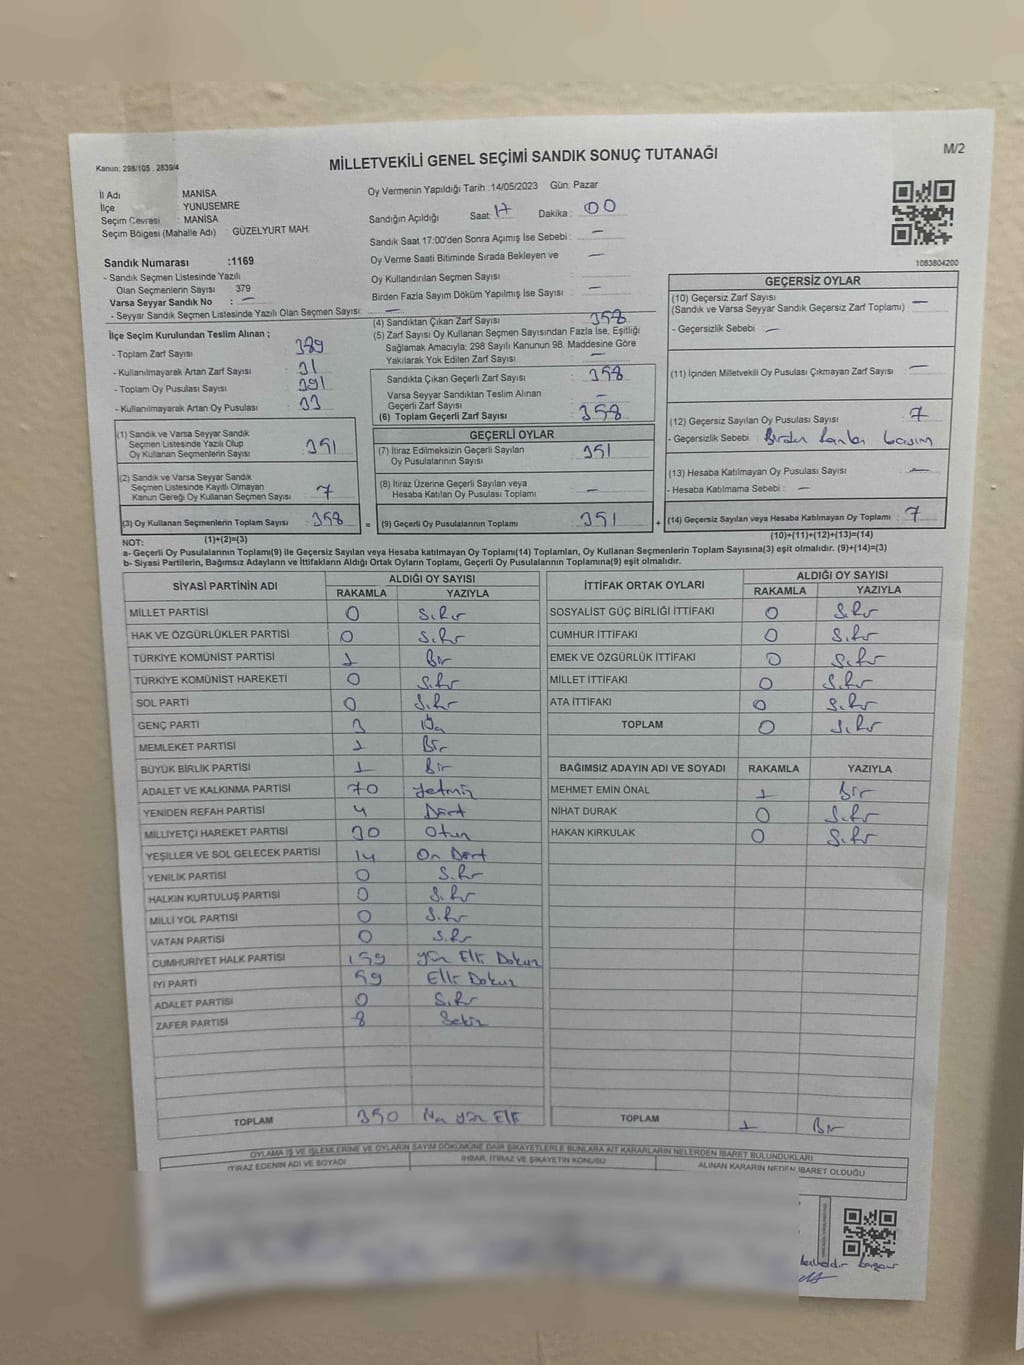 Kanun: 298/105 . 2839/4
MİLLETVEKİLİ GENEL SEÇİMİ SANDIK SONUÇ TUTANAĞI
M/2
İl Adı : MANİSA
İlçe : YUNUSEMRE
Seçim Çevresi : MANİSA
Seçim Bölgesi (Mahalle Adı) : GÜZELYURT MAH.
Oy Vermenin Yapıldığı Tarih : 14/05/2023 Gün: Pazar
Sandığın Açıldığı Saat : 17 Dakika : 00
Sandık Saat 17:00'den Sonra Açımış İse Sebebi : —
Oy Verme Saati Bitiminde Sırada Bekleyen ve —
Oy Kullandırılan Seçmen Sayısı :
Birden Fazla Sayım Döküm Yapılmış İse Sayısı : —
1083804200
Sandık Numarası :1169
- Sandık Seçmen Listesinde Yazılı
Olan Seçmenlerin Sayısı 379
Varsa Seyyar Sandık No : —
- Seyyar Sandık Seçmen Listesinde Yazılı Olan Seçmen Sayısı: —
İlçe Seçim Kurulundan Teslim Alınan ;
- Toplam Zarf Sayısı : 389
- Kullanılmayarak Artan Zarf Sayısı : 31
- Toplam Oy Pusulası Sayısı : 391
- Kullanılmayarak Artan Oy Pusulası : 33
(1) Sandık ve Varsa Seyyar Sandık
Seçmen Listesinde Yazılı Olup
Oy Kullanan Seçmenlerin Sayısı : 351
(2) Sandık ve Varsa Seyyar Sandık
Seçmen Listesinde Kayıtlı Olmayan
Kanun Gereği Oy Kullanan Seçmen Sayısı : 7
(3) Oy Kullanan Seçmenlerin Toplam Sayısı : 358
(1)+(2)=(3)
(4) Sandıktan Çıkan Zarf Sayısı : 358
(5) Zarf Sayısı Oy Kullanan Seçmen Sayısından Fazla İse, Eşitliği
Sağlamak Amacıyla; 298 Sayılı Kanunun 98. Maddesine Göre
Yakılarak Yok Edilen Zarf Sayısı : —
Sandıkta Çıkan Geçerli Zarf Sayısı : 358
Varsa Seyyar Sandıktan Teslim Alınan
Geçerli Zarf Sayısı : —
(6) Toplam Geçerli Zarf Sayısı : 358
GEÇERLİ OYLAR
(7) İtiraz Edilmeksizin Geçerli Sayılan
Oy Pusulalarının Sayısı : 351
(8) İtiraz Üzerine Geçerli Sayılan veya
Hesaba Katılan Oy Pusulası Toplamı : —
= (9) Geçerli Oy Pusulalarının Toplamı : 351
GEÇERSİZ OYLAR
(10) Geçersiz Zarf Sayısı
(Sandık ve Varsa Seyyar Sandık Geçersiz Zarf Toplamı) : —
- Geçersizlik Sebebi : —
(11) İçinden Milletvekili Oy Pusulası Çıkmayan Zarf Sayısı : —
(12) Geçersiz Sayılan Oy Pusulası Sayısı : 7
- Geçersizlik Sebebi : Birden fazla basım
(13) Hesaba Katılmayan Oy Pusulası Sayısı : —
- Hesaba Katılmama Sebebi : —
+ (14) Geçersiz Sayılan veya Hesaba Katılmayan Oy Toplamı : 7
(10)+(11)+(12)+(13)=(14)
NOT:
a- Geçerli Oy Pusulalarının Toplamı(9) ile Geçersiz Sayılan veya Hesaba katılmayan Oy Toplamı(14) Toplamları, Oy Kullanan Seçmenlerin Toplam Sayısına(3) eşit olmalıdır. (9)+(14)=(3)
b- Siyasi Partilerin, Bağımsız Adayların ve İttifakların Aldığı Ortak Oyların Toplamı, Geçerli Oy Pusulalarının Toplamına(9) eşit olmalıdır.
SİYASİ PARTİNİN ADI ALDIĞI OY SAYISI
RAKAMLA YAZIYLA
MİLLET PARTİSİ 0 Sıfır
HAK VE ÖZGÜRLÜKLER PARTİSİ 0 Sıfır
TÜRKİYE KOMÜNİST PARTİSİ 1 Bir
TÜRKİYE KOMÜNİST HAREKETİ 0 Sıfır
SOL PARTİ 0 Sıfır
GENÇ PARTİ 3 Üç
MEMLEKET PARTİSİ 1 Bir
BÜYÜK BİRLİK PARTİSİ 1 Bir
ADALET VE KALKINMA PARTİSİ 70 Yetmiş
YENİDEN REFAH PARTİSİ 4 Dört
MİLLİYETÇİ HAREKET PARTİSİ 30 Otuz
YEŞİLLER VE SOL GELECEK PARTİSİ 14 On Dört
YENİLİK PARTİSİ 0 Sıfır
HALKIN KURTULUŞ PARTİSİ 0 Sıfır
MİLLİ YOL PARTİSİ 0 Sıfır
VATAN PARTİSİ 0 Sıfır
CUMHURİYET HALK PARTİSİ 159 Yüz Elli Dokuz
İYİ PARTİ 59 Elli Dokuz
ADALET PARTİSİ 0 Sıfır
ZAFER PARTİSİ 8 Sekiz
TOPLAM 350 Üç Yüz Elli
İTTİFAK ORTAK OYLARI ALDIĞI OY SAYISI
RAKAMLA YAZIYLA
SOSYALİST GÜÇ BİRLİĞİ İTTİFAKI 0 Sıfır
CUMHUR İTTİFAKI 0 Sıfır
EMEK VE ÖZGÜRLÜK İTTİFAKI 0 Sıfır
MİLLET İTTİFAKI 0 Sıfır
ATA İTTİFAKI 0 Sıfır
TOPLAM 0 Sıfır
BAĞIMSIZ ADAYIN ADI VE SOYADI RAKAMLA YAZIYLA
MEHMET EMİN ÖNAL 1 Bir
NİHAT DURAK 0 Sıfır
HAKAN KIRKULAK 0 Sıfır
TOPLAM 1 Bir
OYLAMA İŞ VE İŞLEMLERİNE VE OYLARIN SAYIM DÖKÜMÜNE DAİR ŞİKAYETLERLE BUNLARA AİT KARARLARIN NELERDEN İBARET BULUNDUKLARI
İTİRAZ EDENİN ADI VE SOYADI İHBAR, İTİRAZ VE ŞİKAYETİN KONUSU ALINAN KARARIN NEDEN İBARET OLDUĞU